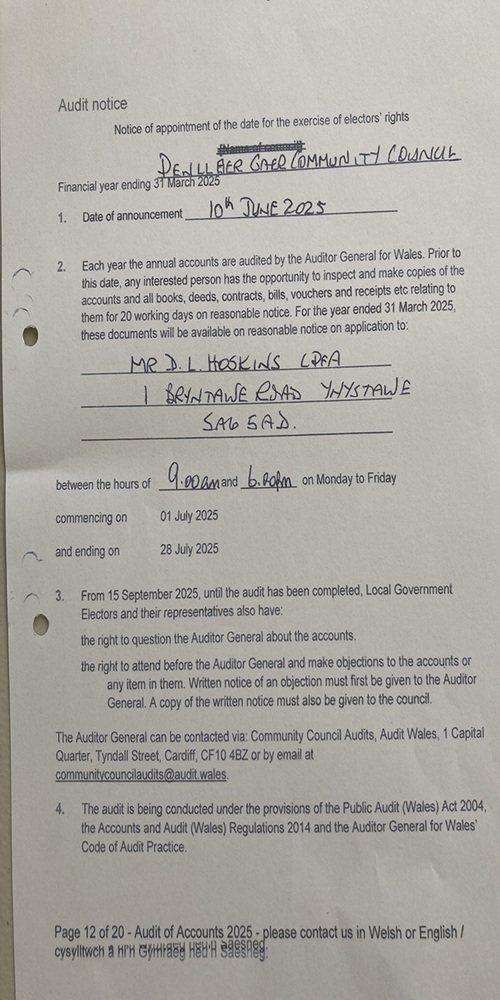 Audit notice
Notice of appointment of the date for the exercise of electors' rights
(Name of council)
PENLLERGAER COMMUNITY COUNCIL
Financial year ending 31 March 2025
1. Date of announcement 10th JUNE 2025
2. Each year the annual accounts are audited by the Auditor General for Wales. Prior to
this date, any interested person has the opportunity to inspect and make copies of the
accounts and all books, deeds, contracts, bills, vouchers and receipts etc relating to
them for 20 working days on reasonable notice. For the year ended 31 March 2025,
these documents will be available on reasonable notice on application to:
MR D. L. HOSKINS CPFA
1 BRYNTAWE ROAD YNYSTAWE
SA6 5AD.
between the hours of 9.00am and 6.00pm on Monday to Friday
commencing on 01 July 2025
and ending on 28 July 2025
3. From 15 September 2025, until the audit has been completed, Local Government
Electors and their representatives also have:
the right to question the Auditor General about the accounts.
the right to attend before the Auditor General and make objections to the accounts or
any item in them. Written notice of an objection must first be given to the Auditor
General. A copy of the written notice must also be given to the council.
The Auditor General can be contacted via: Community Council Audits, Audit Wales, 1 Capital
Quarter, Tyndall Street, Cardiff, CF10 4BZ or by email at
communitycouncilaudits@audit.wales.
4. The audit is being conducted under the provisions of the Public Audit (Wales) Act 2004,
the Accounts and Audit (Wales) Regulations 2014 and the Auditor General for Wales'
Code of Audit Practice.
Page 12 of 20 - Audit of Accounts 2025 - please contact us in Welsh or English /
cysylltwch â ni'n Gymraeg neu'n Saesneg.